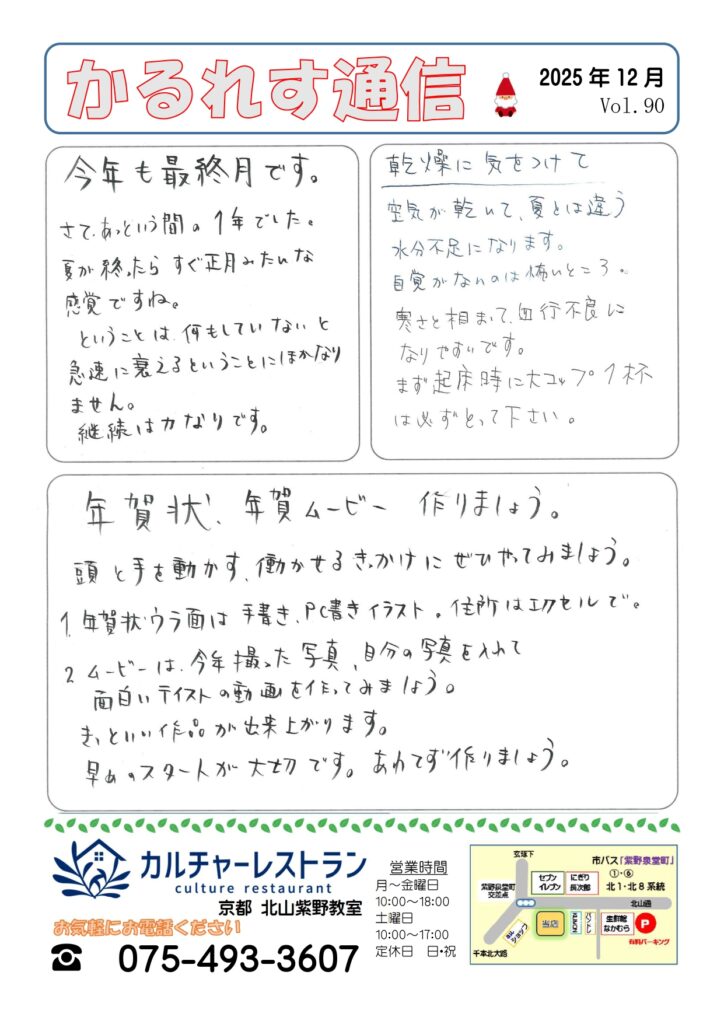 かるれす通信
2025年12月
Vol.90
今年も最終月です。
さて、あっという間の1年でした。
夏が終ったらすぐ正月みたいな
感覚ですね。
ということは、何もしていないと
急速に衰えるということにほかなり
ません。
継続は力なりです。
乾燥に気をつけて
空気が乾いて、夏とは違う
水分不足になります。
自覚がないのは怖いところ。
寒さと相まって、血行不良に
なりやすいです。
まず起床時に大コップ1杯
は必ずとって下さい。
年賀状、年賀ムービー 作りましょう。
頭と手を動かす、働かせるきっかけにぜひやってみましょう。
1. 年賀状ウラ面は手書き、PC書きイラスト。住所はエクセルで。
2. ムービーは、今年撮った写真、自分の写真を入れて
面白いテイストの動画を作ってみましょう。
きっといい作品が出来上がります。
早めのスタートが大切です。あわてず作りましょう。
カルチャーレストラン
culture restaurant
京都 北山紫野教室
お気軽にお電話ください
075-493-3607
営業時間
月~金曜日
10:00~18:00
土曜日
10:00~17:00
定休日 日・祝
玄琢下
市バス「紫野泉堂町」
①・⑥
北1・北8系統
セブン
イレブン
にぎり
長次郎
紫野泉堂町
交差点
北山通
当店
生鮮館
なかむら
P
有料パーキング
千本北大路